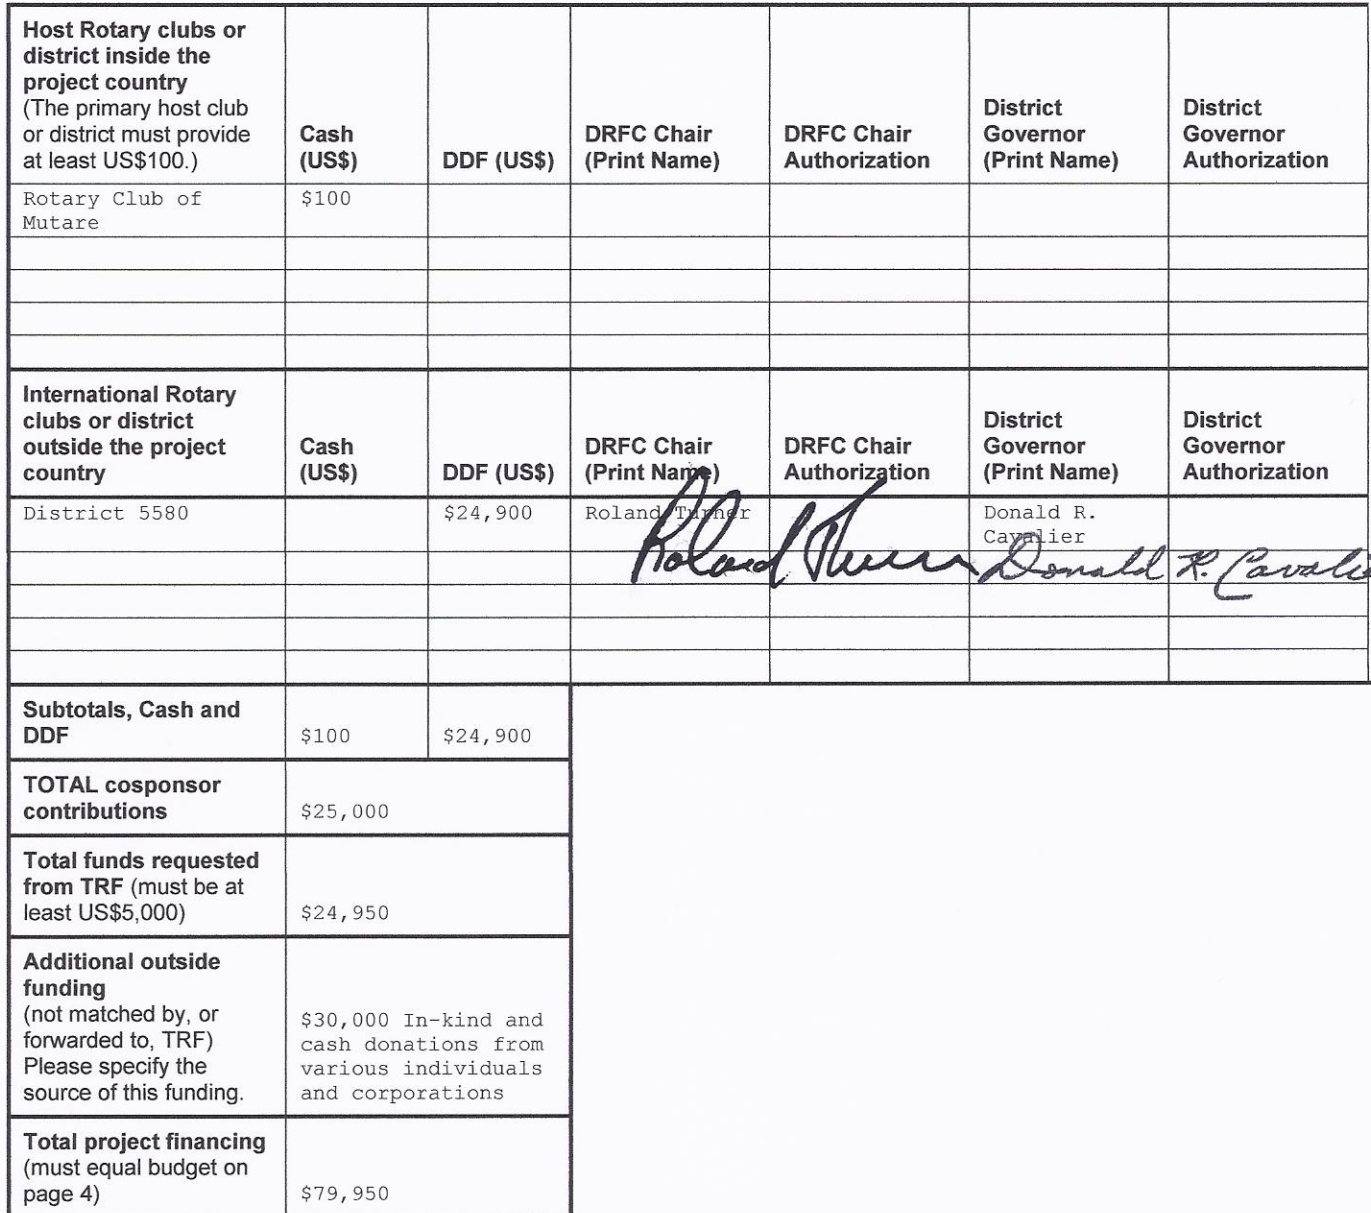 Host Rotary clubs or
district inside the
project country
(The primary host club
or district must provide
at least US$100.)
Cash
(US$)
DDF (US$)
DRFC Chair
(Print Name)
DRFC Chair
Authorization
District
Governor
(Print Name)
District
Governor
Authorization
Rotary Club of
Mutare
$100
International Rotary
clubs or district
outside the project
country
Cash
(US$)
DDF (US$)
DRFC Chair
(Print Name)
DRFC Chair
Authorization
District
Governor
(Print Name)
District
Governor
Authorization
District 5580
$24,900
Roland Turner
Donald R.
Cavalier
Roland Turner
Donald R. Cavalie
Subtotals, Cash and
DDF
$100
$24,900
TOTAL cosponsor
contributions
$25,000
Total funds requested
from TRF (must be at
least US$5,000)
$24,950
Additional outside
funding
(not matched by, or
forwarded to, TRF)
Please specify the
source of this funding.
$30,000 In-kind and
cash donations from
various individuals
and corporations
Total project financing
(must equal budget on
page 4)
$79,950